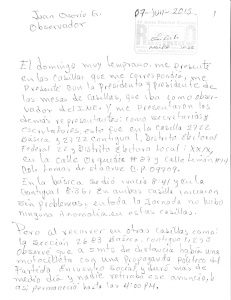 Juan Osorio G.
Observador
07-Jun-2015
1
El domingo muy temprano, me presente
en las Casillas que me correspondio, me
Presente con la Presidenta y presidente de
las mesas de Casillas, que iba como obser-
vador del I.N.E. y me presentaron los
demás representantes: como secretarios y
escrutadores, este fue en la Casilla 2722
Básica y 2722 Contigua 1, Distrito Electoral
Federal 20 y Distrito Electoral local: XXIX,
en la calle Orquidea #87 y calle Limón #14
Col. Lomas de
En la básica se dió inició 8:41 y en la
Contigua 8:30. En ambas casillas iniciaron
sin problemas, entodo la Jornada no hubo
ninguna anomalía en estas casillas.
Pero al recorrer en otras casillas como:
la sección 2683 Básica, contigua 1, 2 y 3
observe me a 20 mts de distancia había una
motocicleta con una propaganda político del
Partido Encuentro Social y duró más de
medio día y nadie retiraba ese anuncio, ó
así permaneció hasta las 4:00 PM.